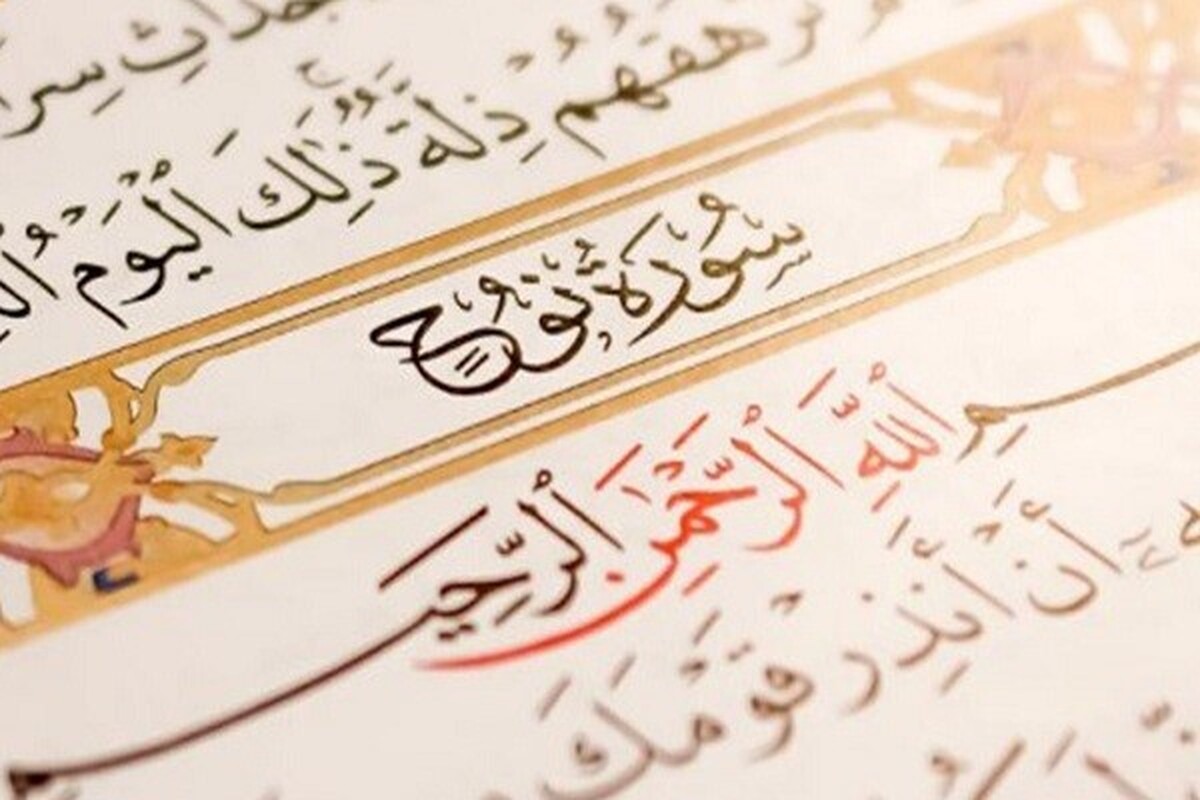 جدَاثِ سِرَا
تَرْهَقُهُمْ ذِلَّةٌ ذَٰلِكَ ٱلْيَوْمُ ٱلَّ
سُورَةُ نُوحٍ
سْمِ ٱللَّهِ ٱلرَّحْمَٰنِ ٱلرَّحِيمِ
أَنْ أَنذِرْ قَوْمَكَ